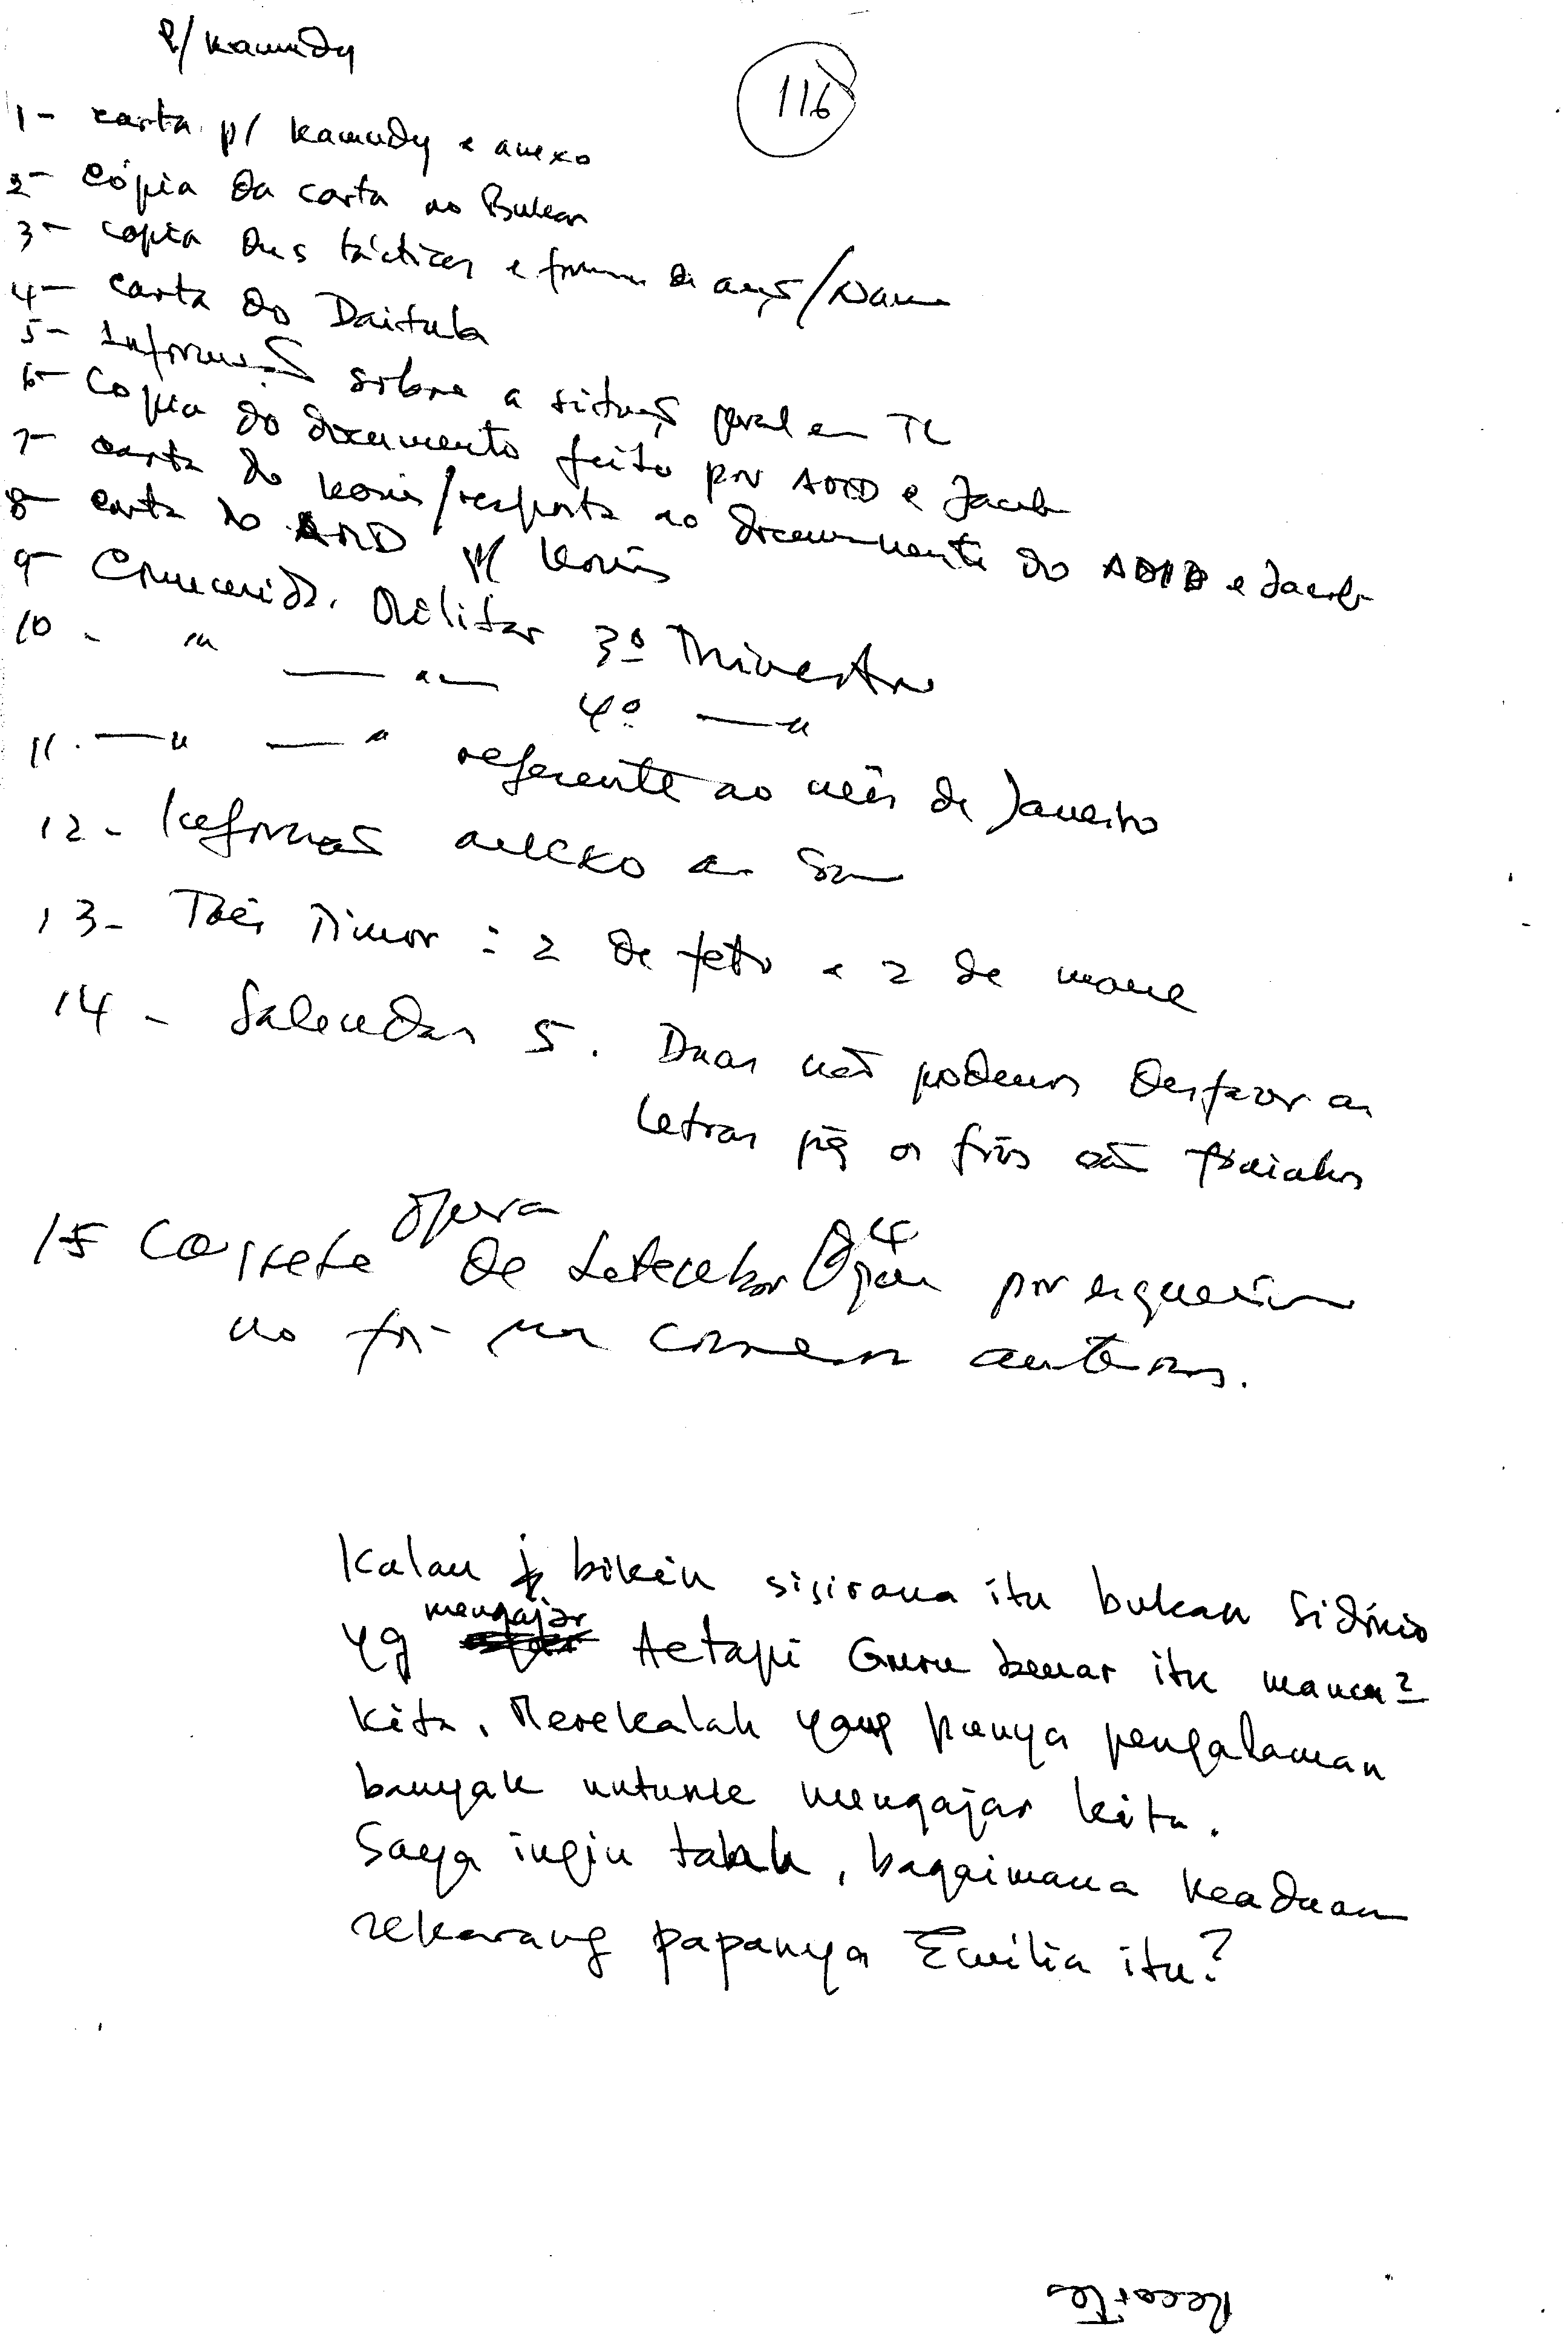 P/ Kamudy
116
1- carta p/ Kamudy e anexo
2- cópia da carta ao Bulear
3- copia das tácticas e formas de acçõ/Name
4- carta do Daitula
5- Informaçõ sobre a situaçõ geral em TL
6- Copia do documento feito por AORD e Jacob
7- carta do Konis/resposta ao documento do e Jacob
8- carta do p/ Konis
9- Comunicdo. Militar 3º Trimestre
10- " —— " —— 4º —— "
11. —— " —— " referente ao mês de Janeiro
12- Informaçõ anexo ao
13- Tais Timor : 2 de feto e 2 de mane
14- Salendas 5. Duas nõ podemos desfazer as
letras pq os fios são
15 Cassete opera de Setembro 94 que por esqueci
no foi na anteriores.
Kalau bikin sisirana itu bukan Sidónio
yg mengajar Aetapi Guru benar itu mama2
kita. Merekalah yang punya pengalaman
banyak untunk mengajar kita.
Saya ingin tahu, bagaimana keadaan
sekarang papanya Emilia itu?
Recortes